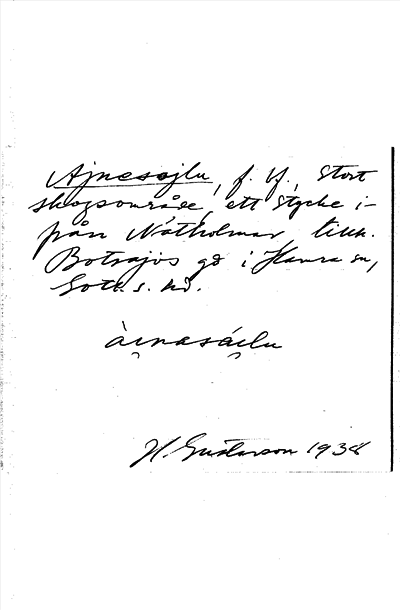 Ajnesojlu, f. Y., Stort
skogsområde, ett stycke i-
från Nátholmar, tillh.
Botrajvs gd i Hamra sn,
Gotl. s. hd.
àınasáılu
H. Gustavson 1938